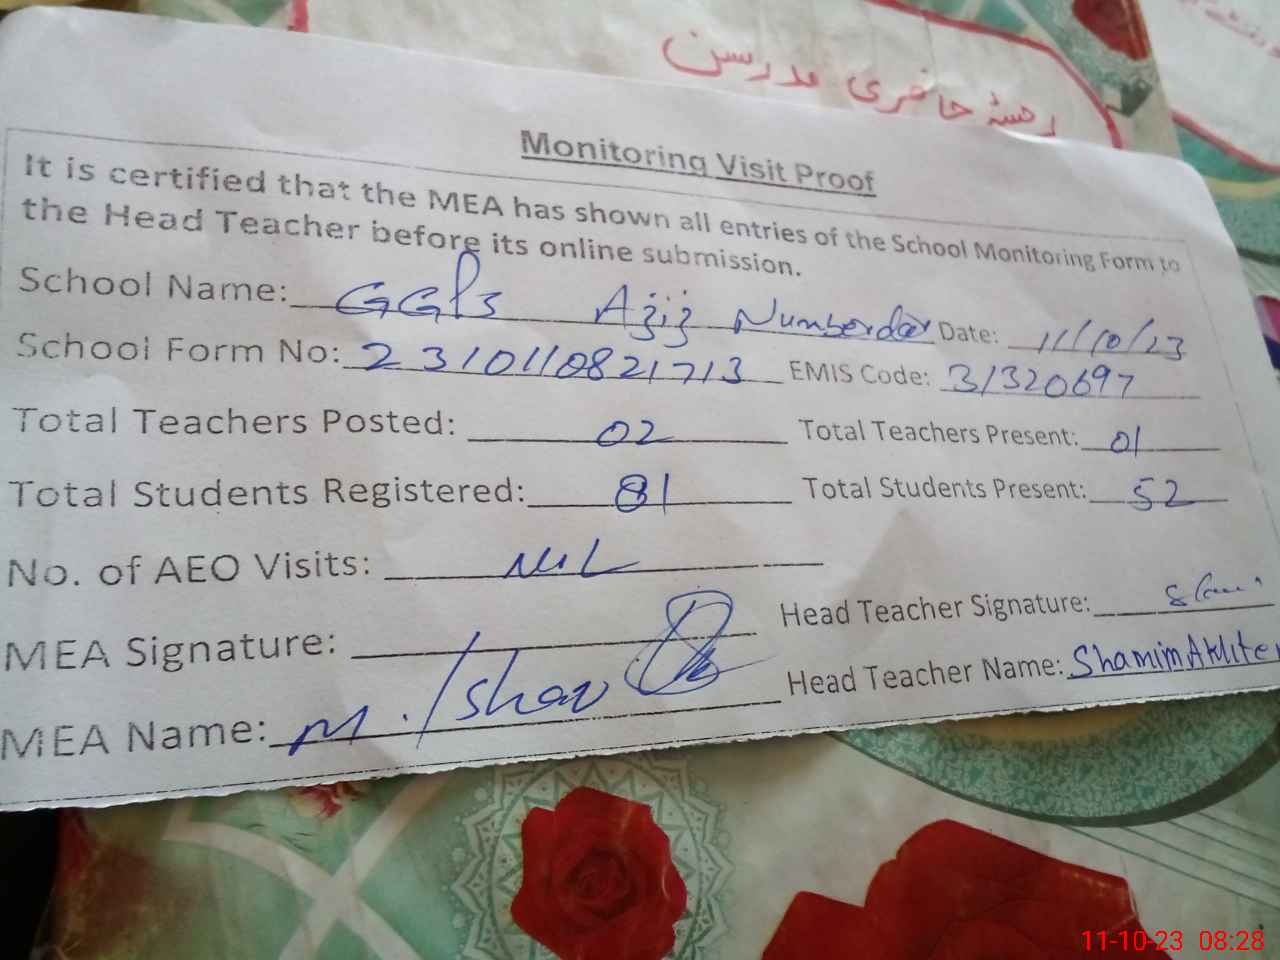 رجسٹر حاضری مدرسن
Monitoring Visit Proof
It is certified that the MEA has shown all entries of the School Monitoring Form to
the Head Teacher before its online submission.
School Name: GGPS Aziz Numberdar Date: 11/10/23
School Form No: 2310110821713 EMIS Code: 31320697
Total Teachers Posted: 02 Total Teachers Present: 01
Total Students Registered: 81 Total Students Present: 52
No. of AEO Visits: NIL
MEA Signature: Head Teacher Signature:
MEA Name: M. Head Teacher Name: Shamim Akhter
11-10-23 08:28